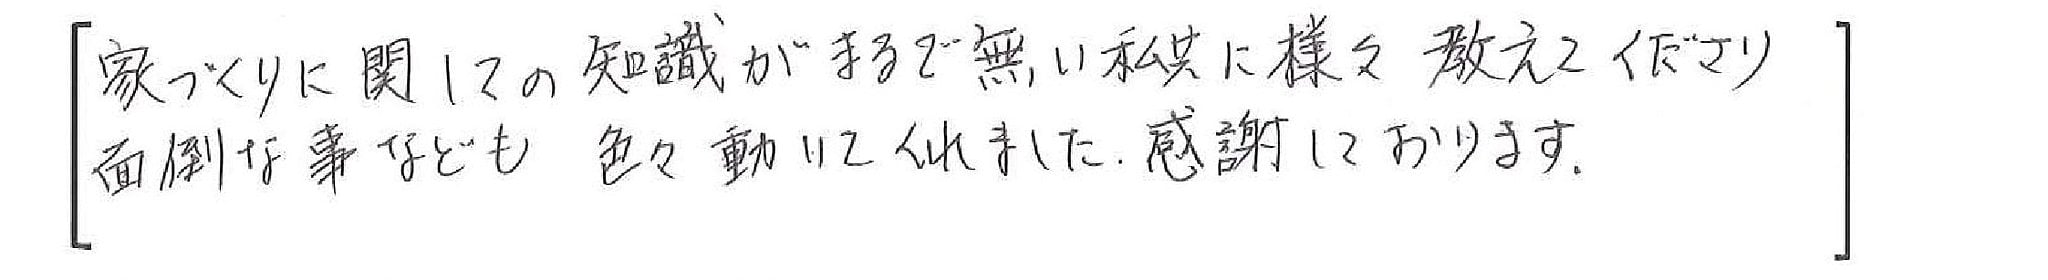 家づくりに関しての知識がまるで無い私共に様々教えてくださり
面倒な事なども色々動いてくれました。感謝しております。